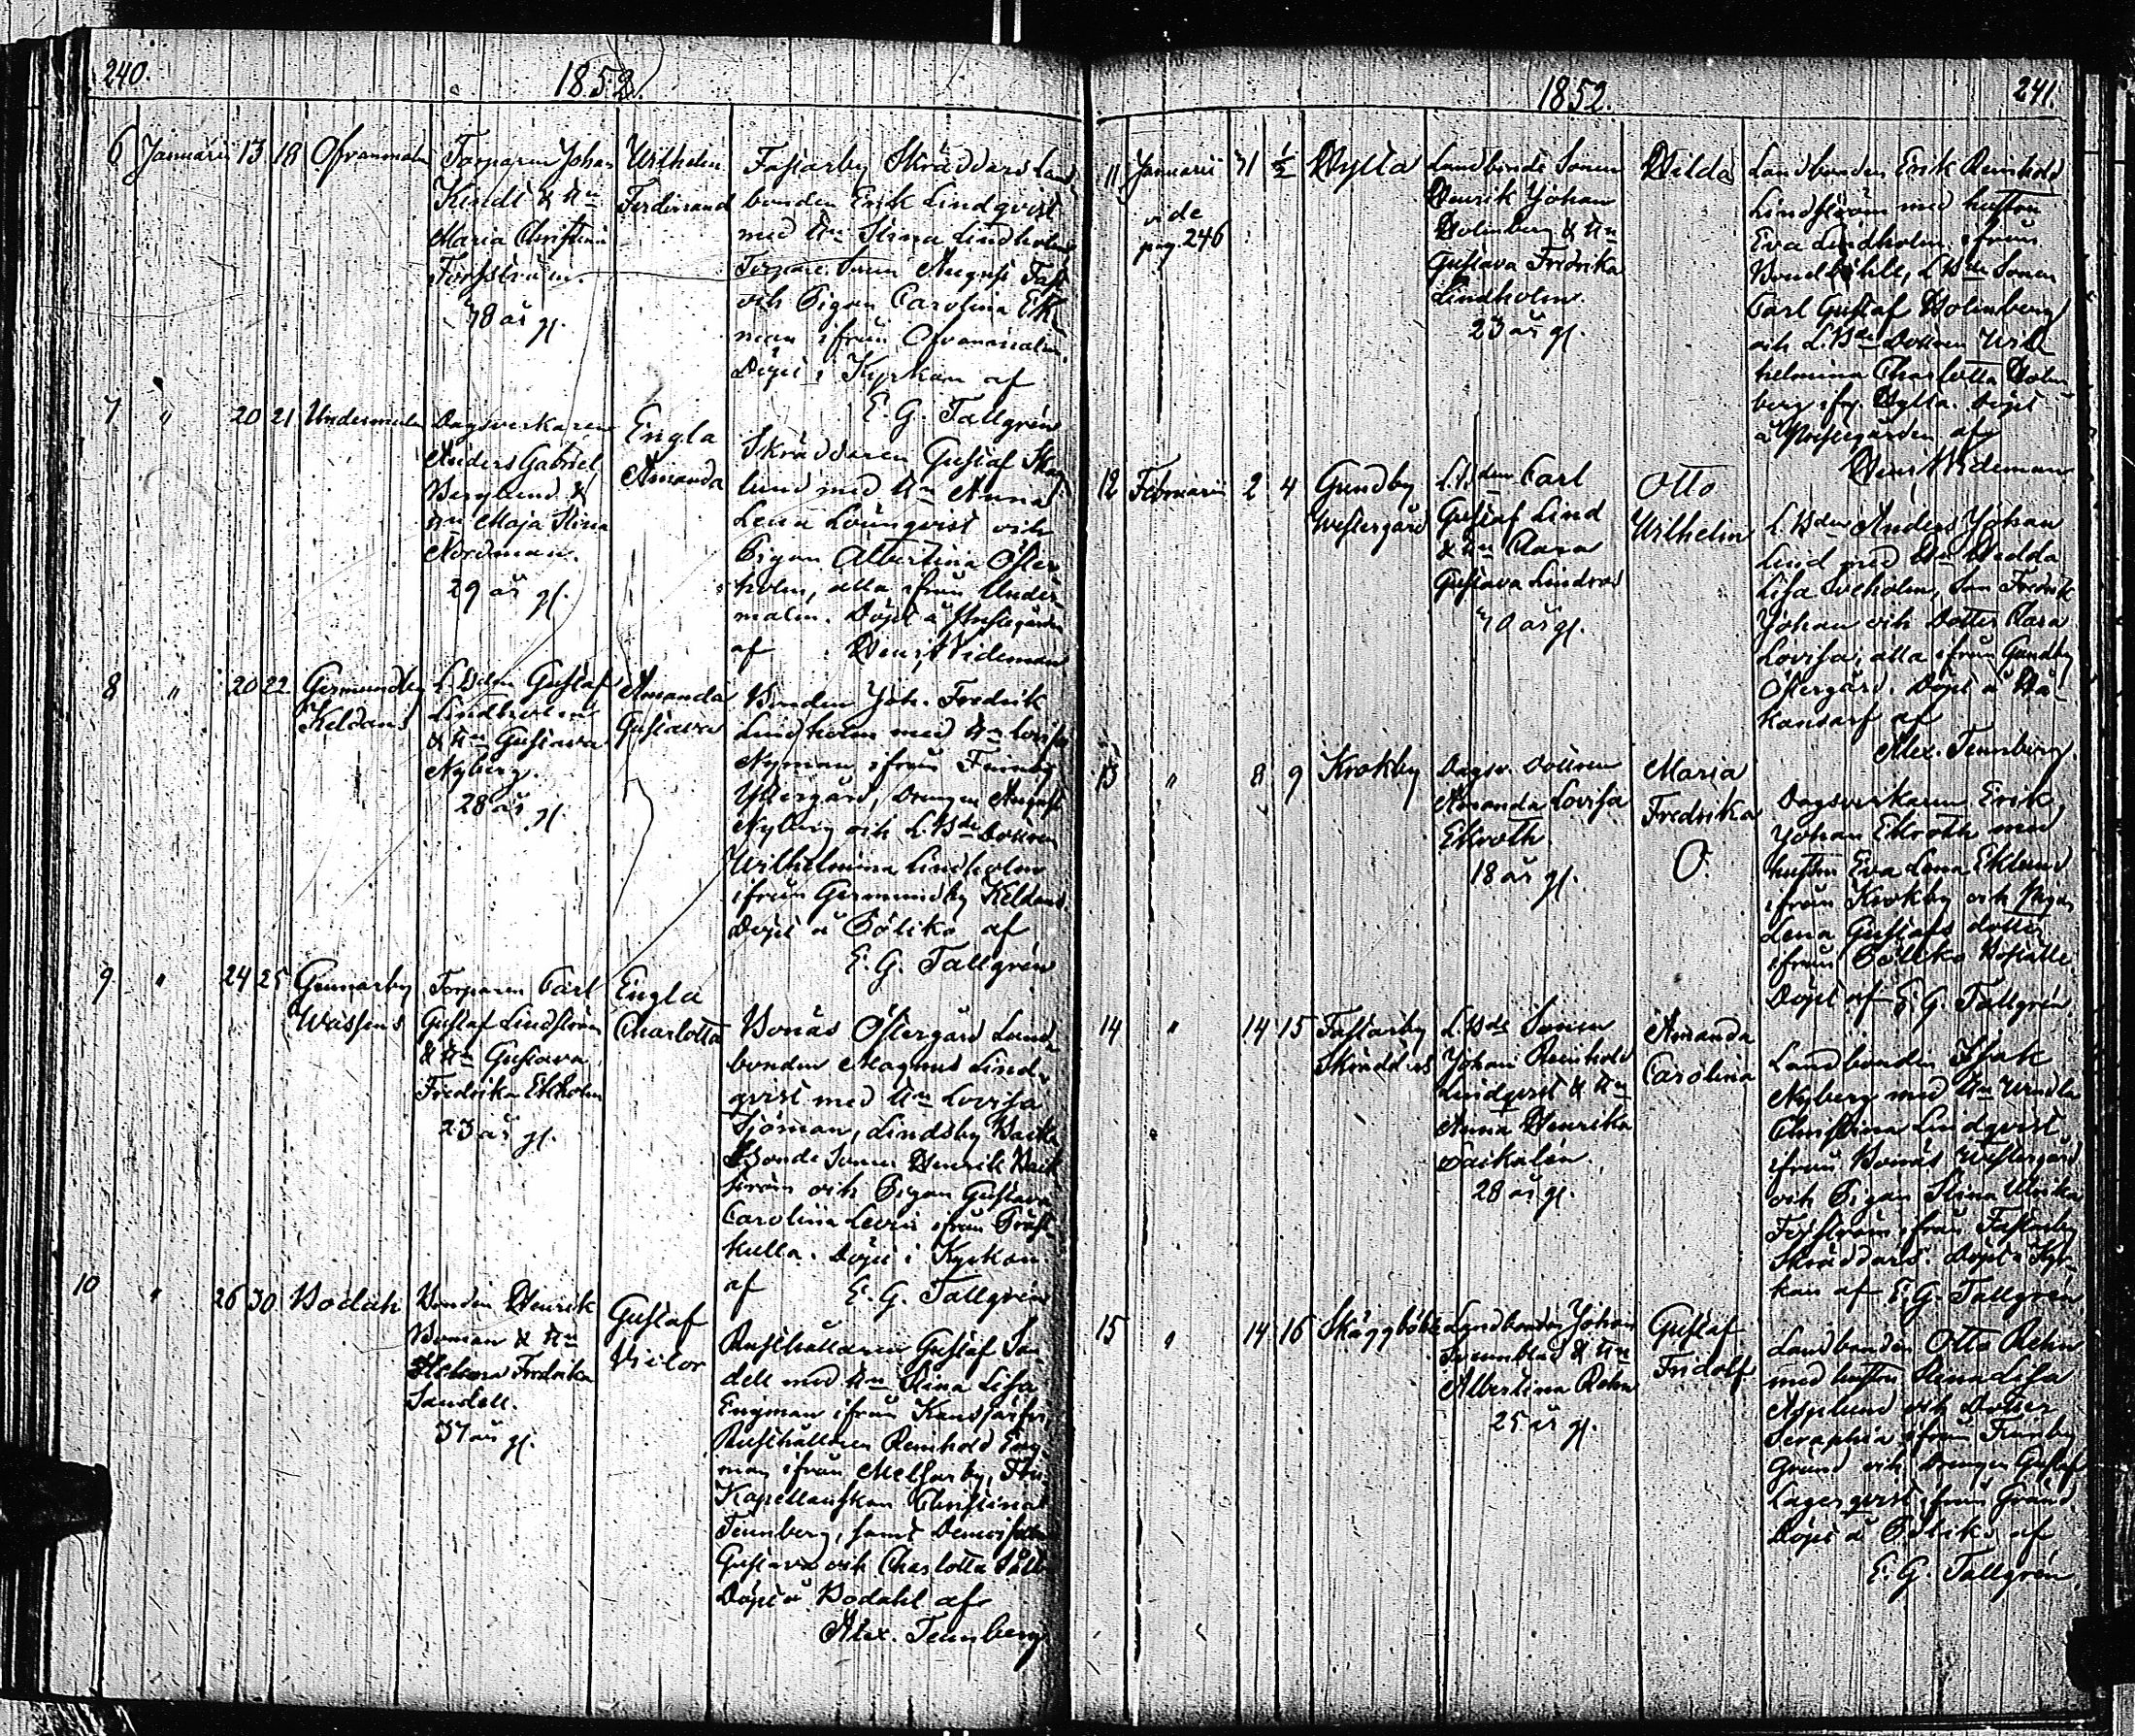 240.
1852.
6 Januarii 13 18 Ofvanmalm
Torparen Johan
& Hu
Maria Christina
Forsström.
38 år gl.
Wilhelm
Ferdinand
Fastarby Skräddars Land
bonden Erik Lindqvist
med Hu Stina Lindholm
Torpare Sonen August
och Pigan Carolina Ek
man ifrån Ofvanmalm.
Döpt i Kyrkan af
E. G. Tallgrén
7 " 20 21 Undermalm
Dagsverkaren
Anders Gabriel
Berglund &
Hu Maja Stina
Nordman.
29 år gl.
Engla
Amanda
Skräddaren Gustaf Skog
lund med Hu Anna
Lena Löunqvist och
Pigan Albertina Öster
holm, alla ifrån Under
malm. Döpt å Prestegården
af Henr. Wideman
8 " 20 22 Germundby
Keldans
L.Bden Gustaf
Lindholm
& Hu Gustava
Nyberg.
28 år gl.
Amanda
Gustava
Bonden Joh. Fredrik
Lindholm med Hu Lovisa
Nyman ifrån Finnby
Ystergård, Drengen August
Nyberg och L.Bde Dottren
Wilhelmina Lindholm
ifrån Germundby Keldans.
Döpt å Pöliko af
E. G. Tallgrén
9. " 24 25 Gennarby
Wassens
Torparen Carl
Gustaf Lindström
& Hu Gustava
Fredrika Ekholm
23 år gl.
Engla
Charlotta
Bonäs Östergård Land
bonden Magnus Lind
qvist med Hu Lovisa
Sjöman, Lindsby Backa
Bonde Sonen Henrik Back
ström och Pigan Gustava
Carolina Levin ifrån Präst
kulla. Döpt i Kyrkan
af E. G. Tallgrén
10 " 26 30 Bodah
Bonden Henrik
Boman & Hu
Helena Fredrika
Sandell.
37 år gl.
Gustaf
Victor
Rusthållaren Gustaf San
dell med Hu Stina Lisa
Engman ifrån Kansjärfvi
Rusthållaren Reinhold Eng
man ifrån Melsarby, Fru
Kapellanskan Christina
Tennberg, samt
Gustava och Charlotta
Döpt å Bodahl af
Alex. Tennberg
1852.
241.
11 Januarii 31 1/2 Hylta
vide
pag. 246
Landbonde Sonen
Henrik Johan
Holmberg & Hu
Gustava Fredrika
Lindholm.
23 år gl.
Hilda
Landbonden Erik Reinhold
Lindström med hustrun
Eva Lindholm ifrån
L.Bde Sonen
Carl Gustaf Holmberg
och L.Bde Dottren Wil
helmina Charlotta Holm
berg ifr. Hylta. Döpt
å Prestegården af
Henr. Wideman
12 Februarii 2 4 Gundby
Westergård
L.Bden Carl
Gustaf Lind
& Hu Clara
Gustava Lindroos
30 år gl.
Otto
Wilhelm
L.Bden Anders Johan
Lind med Hu Hedda
Lisa Sveholm, Son Fredrik
Johan och Dotter Clara
Lovisa, alla ifrån Gundby
Östergård. Döpt å Hå
kansarf af
Alex. Tennberg.
13 " 8 9 Krokby
Dagsv. Dottren
Amanda Lovisa
Ekroth
18 år gl.
Maria
Fredrika
O.
Dagsverkaren Erik
Johan Ekroth med
hustrun Eva Lena Eklund
ifrån Krokby och Pigan
Lena Gustafs dotter
ifrån Pöliko Boställe
Döpt af E. G. Tallgrén
14 " 14 15 Fastarby
Skräddars
L.Bde Sonen
Johan Reinhold
Lindqvist & Hu
Anna Henrika
28 år gl.
Amanda
Carolina
Landbonden Isak
Nyberg med Hu Wendla
Christina Lindqvist
ifrån Bonäs Westergård
och Pigan Stina Ulrika
Forsström ifrån Fastarby
Skräddars. Döpt i Kyr
kan af E. G. Tallgrén
15 " 14 16 Skäggböle
Landbonden Johan
& Hu
Albertina Rehn
25 år gl.
Gustaf
Fridolf
Landbonden Otto Rehn
med hustru Stina Lisa
Asplund och Dotter
Seraphia ifrån Finnby
Gränd och Drengen Gustaf
Lagerqvist ifrån Gränd.
Döpt å Pöliko af
E. G. Tallgrén.